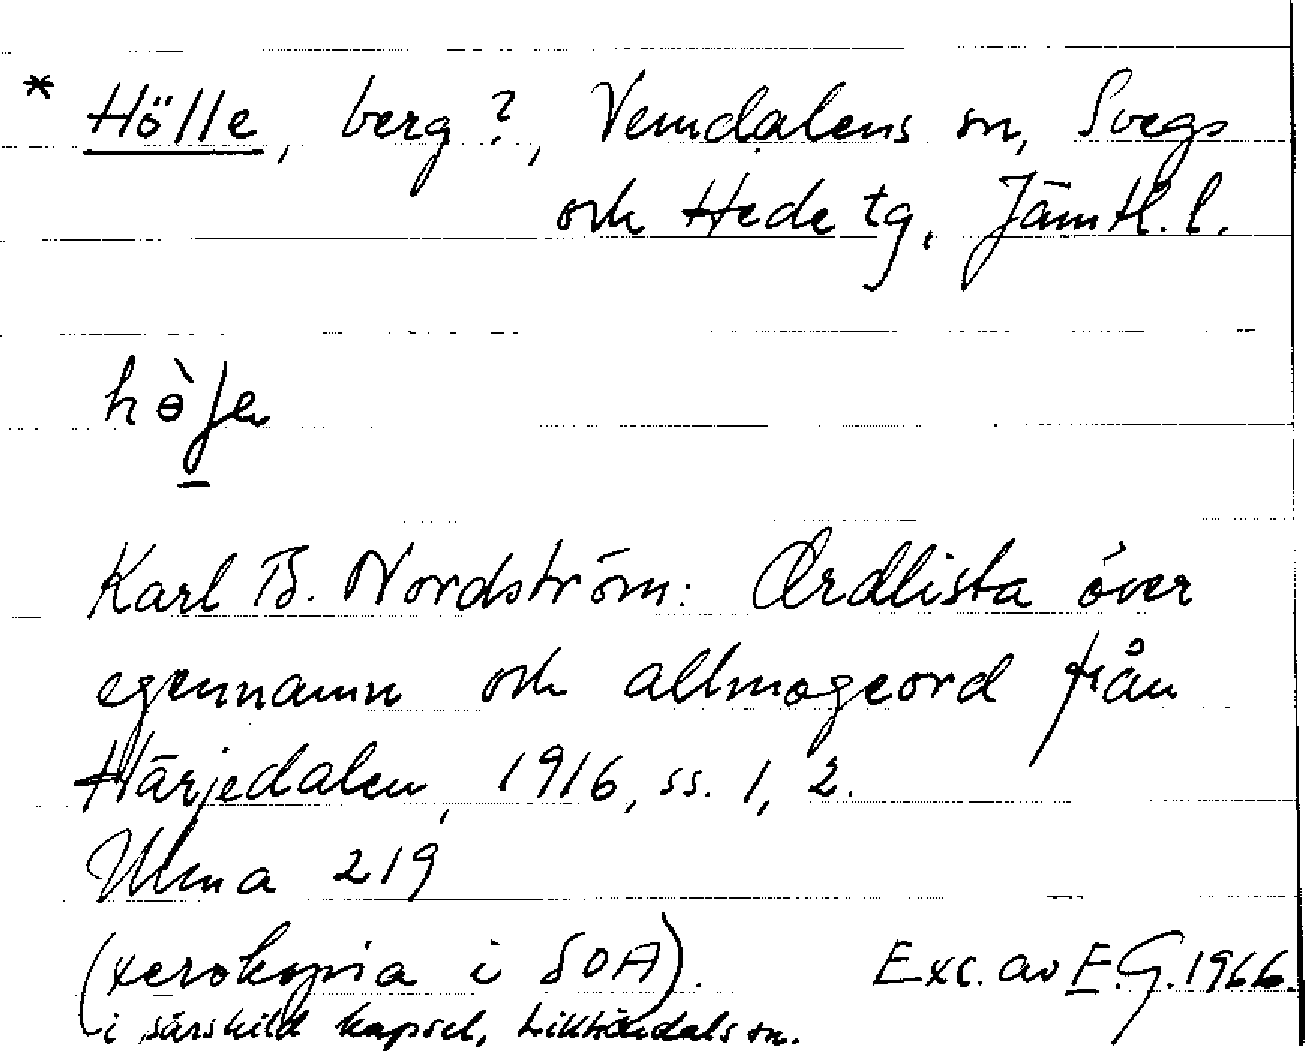 * Hölle, berg?, Vemdalens sn, Svegs
och Hede tg, Jämtl. l.
Karl B. Nordström: Ordlista över
egennamn och allmogeord från
Härjedalen, 1916, ss. 1, 2.
Ulma 219
(xerokopia i SOA). Exc. av E.G. 1966.
i särskild kapsel, sn.